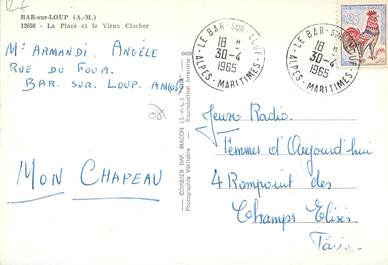 BAR-sur-LOUP (A.-M.)
12650 - La Place et le Vieux Clocher
Mˡ ARMANDI. ANGÈLE
RUE DU FOUR.
BAR. SUR. LOUP. AM(06)
MON CHAPEAU
COMBIER IMP. MACON (S.-&-L.)
Photographie Véritable - Reproduction Interdite
LE BAR-SUR-LOUP
18 H
30-4
1965
ALPES-MARITIMES
LE BAR-SUR-LOUP
18 H
30-4
1965
ALPES-MARITIMES
0,25
Jeux Radio.
Femmes d'Aujourd'hui
4 Rompoint des
Champs Elisés
Paris